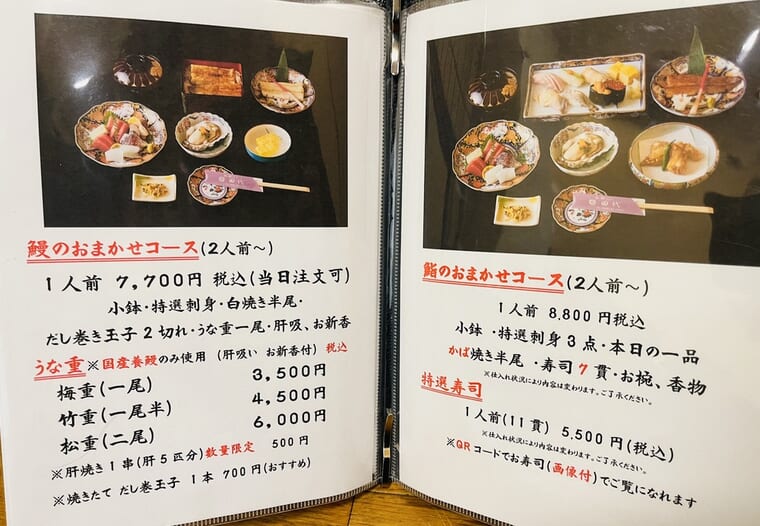 鰻のおまかせコース(2人前～)
1人前 7,700円 税込(当日注文可)
小鉢・特選刺身・白焼き半尾・
だし巻き玉子2切れ・うな重一尾・肝吸、お新香
うな重 ※国産養鰻のみ使用 (肝吸い お新香付) 税込
梅重(一尾) 3,500円
竹重(一尾半) 4,500円
松重(二尾) 6,000円
※肝焼き1串(肝5匹分)数量限定 500円
※焼きたて だし巻玉子 1本 700円(おすすめ)
鮨のおまかせコース(2人前～)
1人前 8,800円税込
小鉢・特選刺身3点・本日の一品
かば焼き半尾・寿司7貫・お椀、香物
※仕入れ状況により内容は変わります。ご了承ください。
特選寿司
1人前(11貫) 5,500円(税込)
※仕入れ状況により内容は変わります。ご了承ください。
※QRコードでお寿司(画像付)でご覧になれます